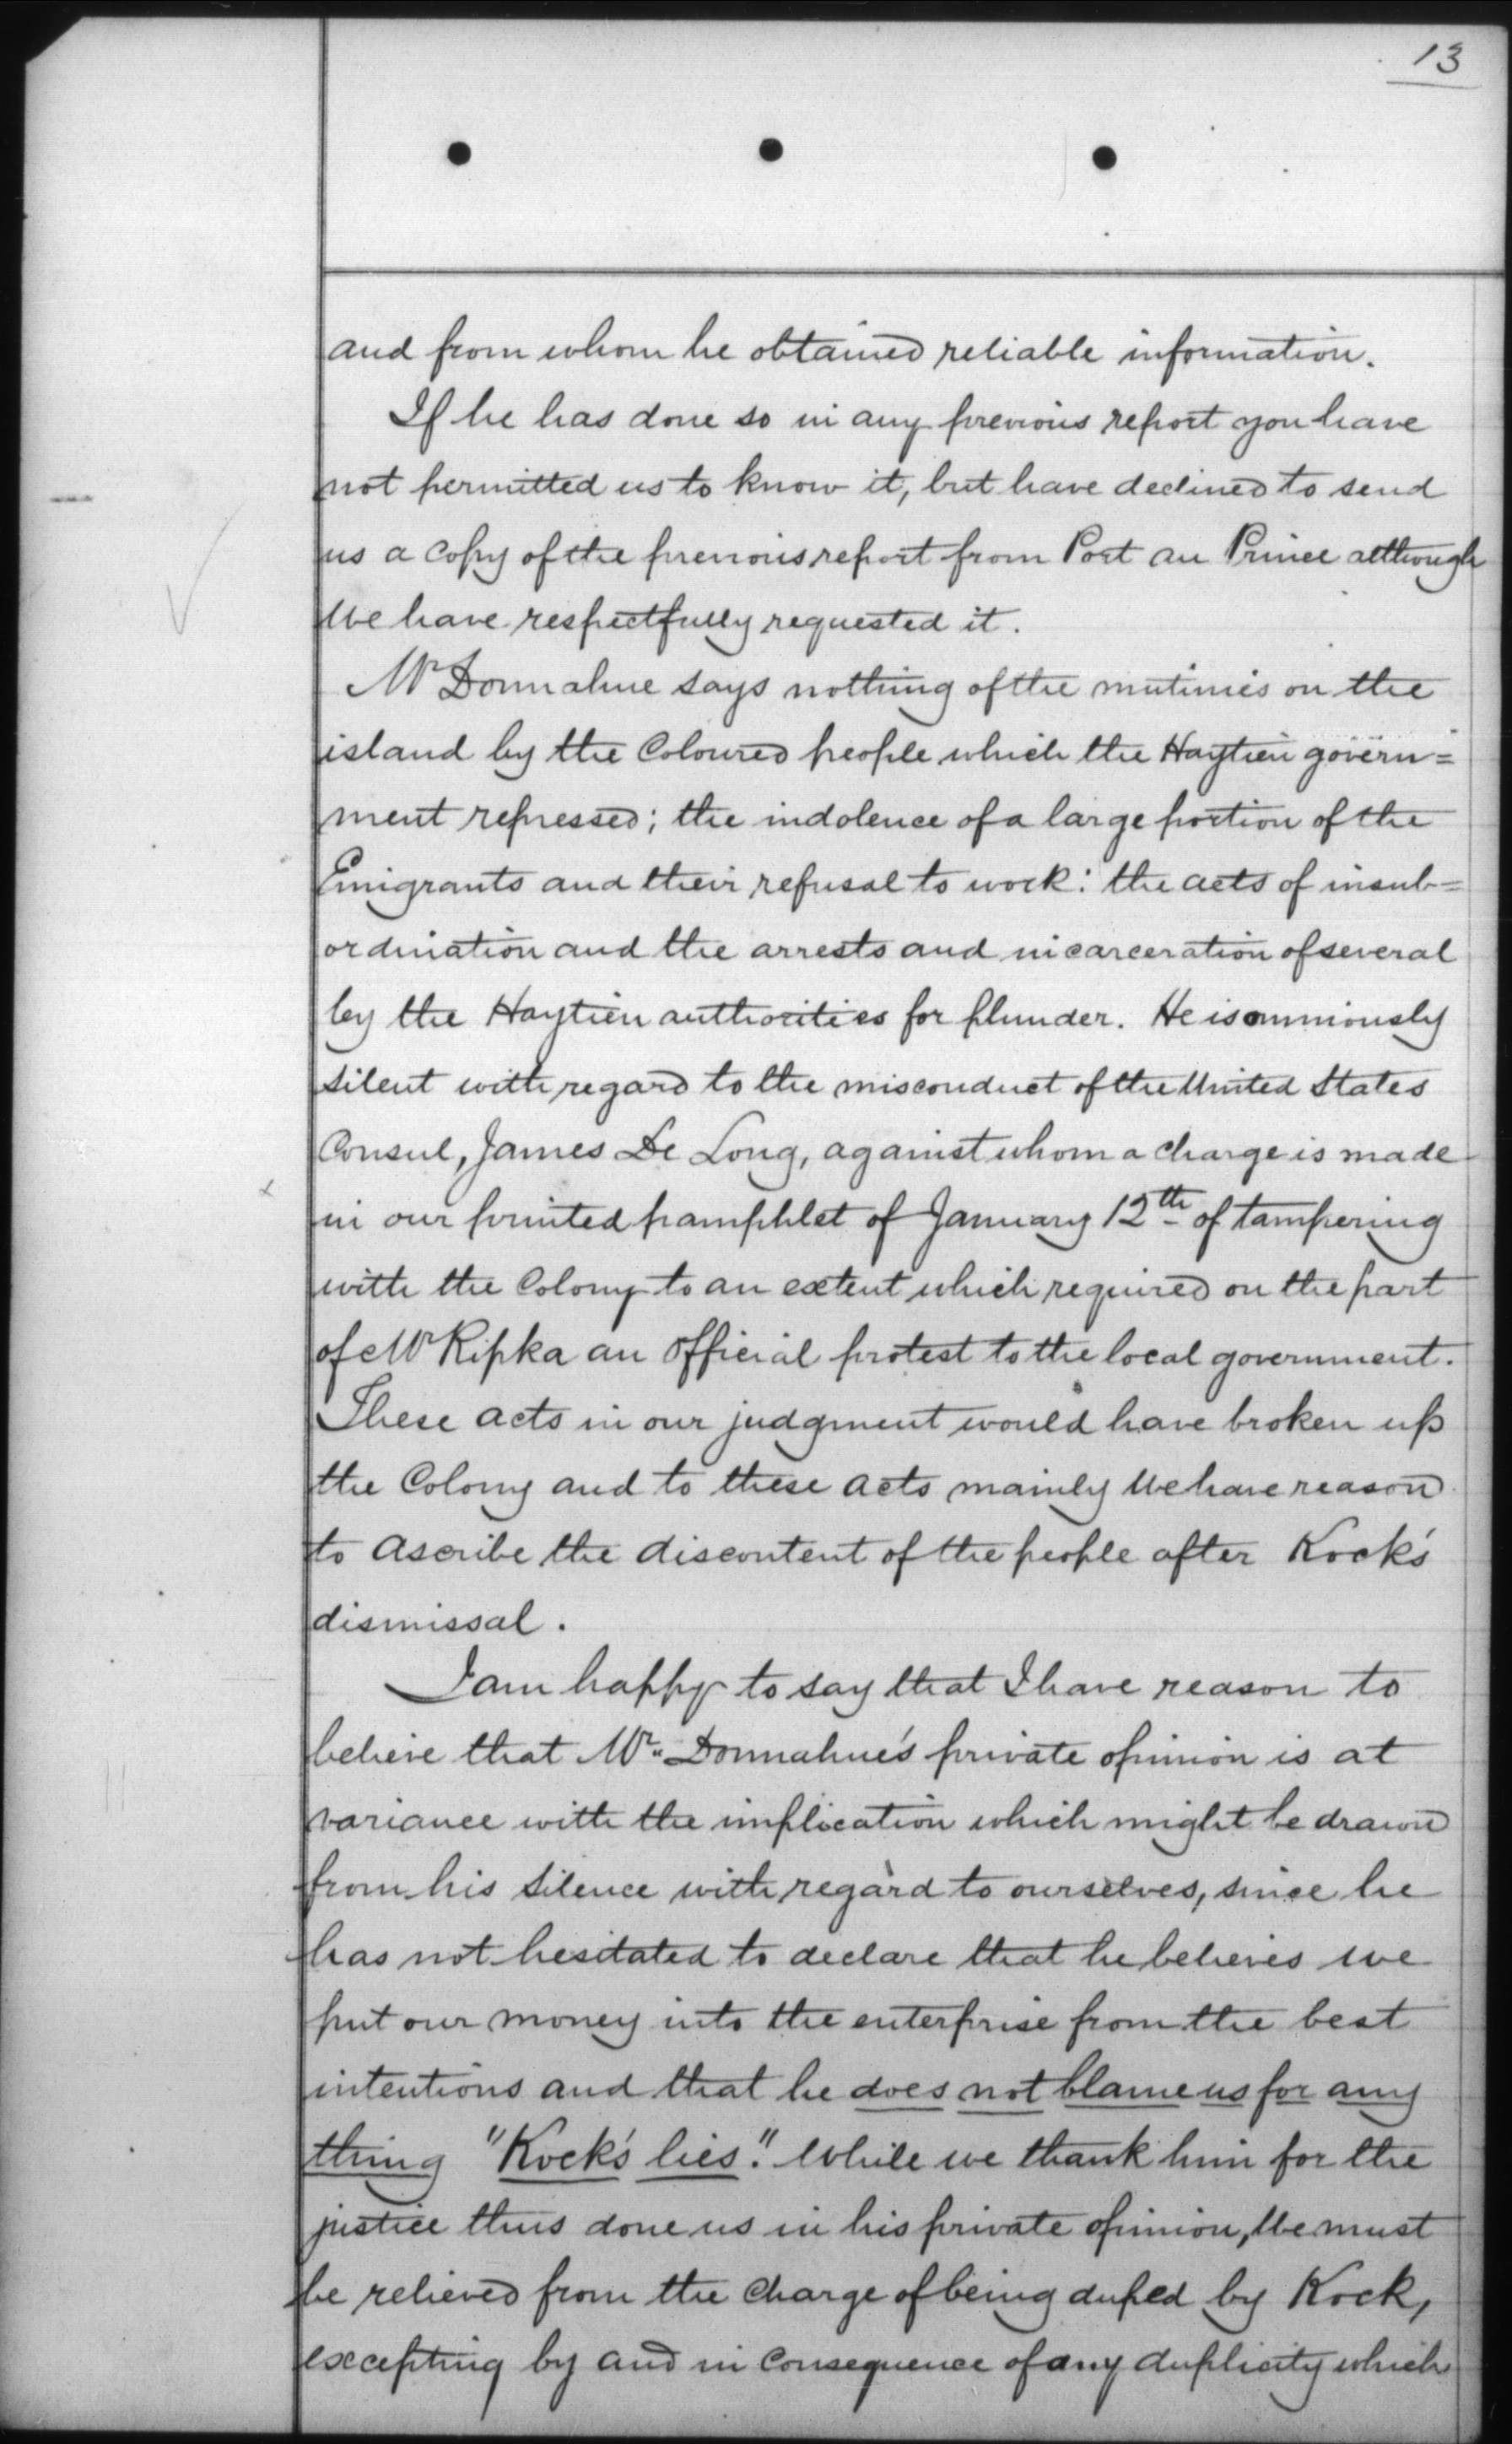 13
and from whom he obtained reliable information.
If he has done so in any previous report you have
not permitted us to know it, but have declined to send
us a copy of the previous report from Port au Prince although
We have respectfully requested it.
Mr Donnahue says nothing of the mutinies on the
island by the Coloured people which the Haytien govern=
ment repressed; the indolence of a large portion of the
Emigrants and their refusal to work: the acts of insub=
ordination and the arrests and incarceration of several
by the Haytien authorities for plunder. He is ominously
silent with regard to the misconduct of the United States
Consul, James De Long, against whom a charge is made
in our printed pamphlet of January 12th of tampering
with the Colony to an extent which required on the part
of Mr Ripka an official protest to the local government.
These acts in our judgment would have broken up
the Colony and to these acts mainly We have reason
to ascribe the discontent of the people after Kock's
dismissal.
I am happy to say that I have reason to
believe that Mr. Donnahue's private opinion is at
variance with the implication which might be drawn
from his silence with regard to ourselves, since he
has not hesitated to declare that he believes we
put our money into the enterprise from the best
intentions and that he does not blame us for any
thing "Kock's lies." While we thank him for the
justice thus done us in his private opinion, We must
be relieved from the charge of being duped by Kock,
excepting by and in consequence of any duplicity which